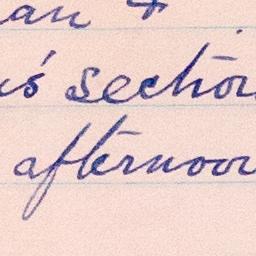 an &
's section
afternoon